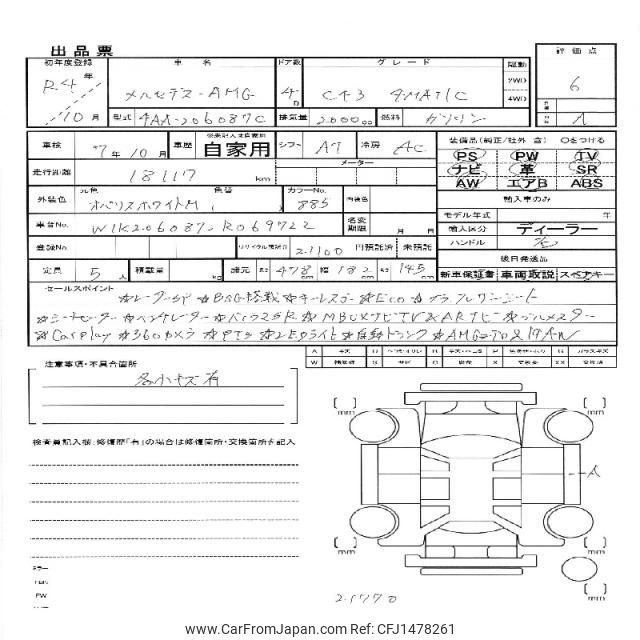 出品票
評価点
初年度登録 車名 ドア数 グレード 駆動
R4年 メルセデス-AMG 4D C43 4MATIC 2WD 6
10月 4WD
型式 4AA-206087C 排気量 2000cc 燃料 ガソリン A
車検 7年10月 車歴 自家用 シフト AT 冷房 AC
装備品(純正/社外 含) ○をつける
PS PW TV
走行距離 18117 km メーター
ナビ 革 SR
AW エアB ABS
外装色 元色 色替 カラーNo. 内装色
オパリスホワイトM 885
輸入車のみ
モデル年式 年
車台No. W1K2060872R069722 名変期限 月 日
輸入区分 ディーラー
登録No. リサイクル預託金 21100 円預託済 未預託
ハンドル
定員 5人 積載量 kg 諸元 長さ 478 幅 182 高さ 145 cm
後日発送品
新車保証書 車両取説 スペアキー
セールスポイント
☆レーダーSP ☆BSG搭載 ☆キーレスゴー ☆Eco
☆シートヒーター ☆パノラマSR ☆MBUXナビTV&ARナビ ☆ブルメスター
☆Carplay ☆360カメラ ☆PTS ☆LEDライト ☆自動トランク
注意事項・不具合箇所
各小キズ有
検査員記入欄:修復歴「有」の場合は修復箇所・交換箇所を記入
mm
mm
A
mm
mm
PW
21770
www.CarFromJapan.com Ref No: CFJ1478261